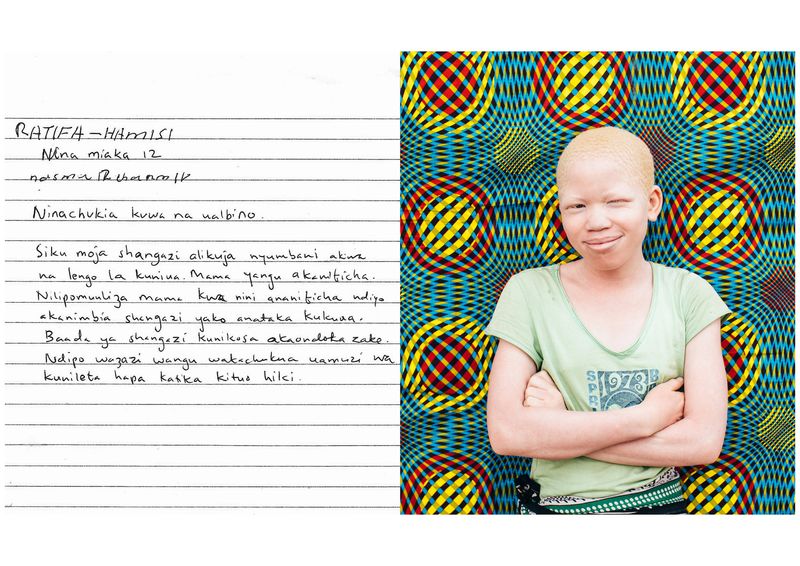 RATIFA-HAMISI
Nina miaka 12
Ninachukia kuwa na ualbino.
Siku moja shangazi alikuja nyumbani akiwa
na lengo la kuniua. Mama yangu akanificha.
Nilipomuuliza mama kwa nini ananificha ndipo
akanimbia shangazi yako anataka kukuua.
Baada ya shangazi kunikosa akaondoka zake.
Ndipo wazazi wangu wakachukua uamuzi wa
kunileta hapa katika kituo hiki.
1973